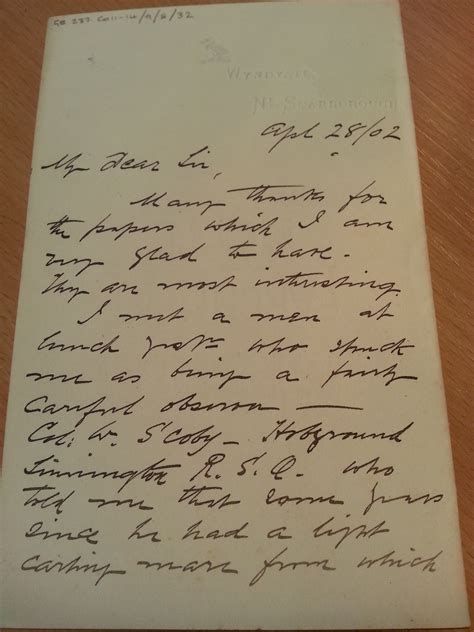 GB 237 Coll-14/9/8/32
Nr. Scarborough
Apl 28/02
My Dear Sir,
Many thanks for
the papers which I am
very glad to have.
They are most interesting.
I met a man at
lunch yesty who struck
me as being a fairly
careful observer —
Col: W. Scoby - Hobground
Sinnington R.S.O. who
told me that some years
since he had a light
carting mare from which